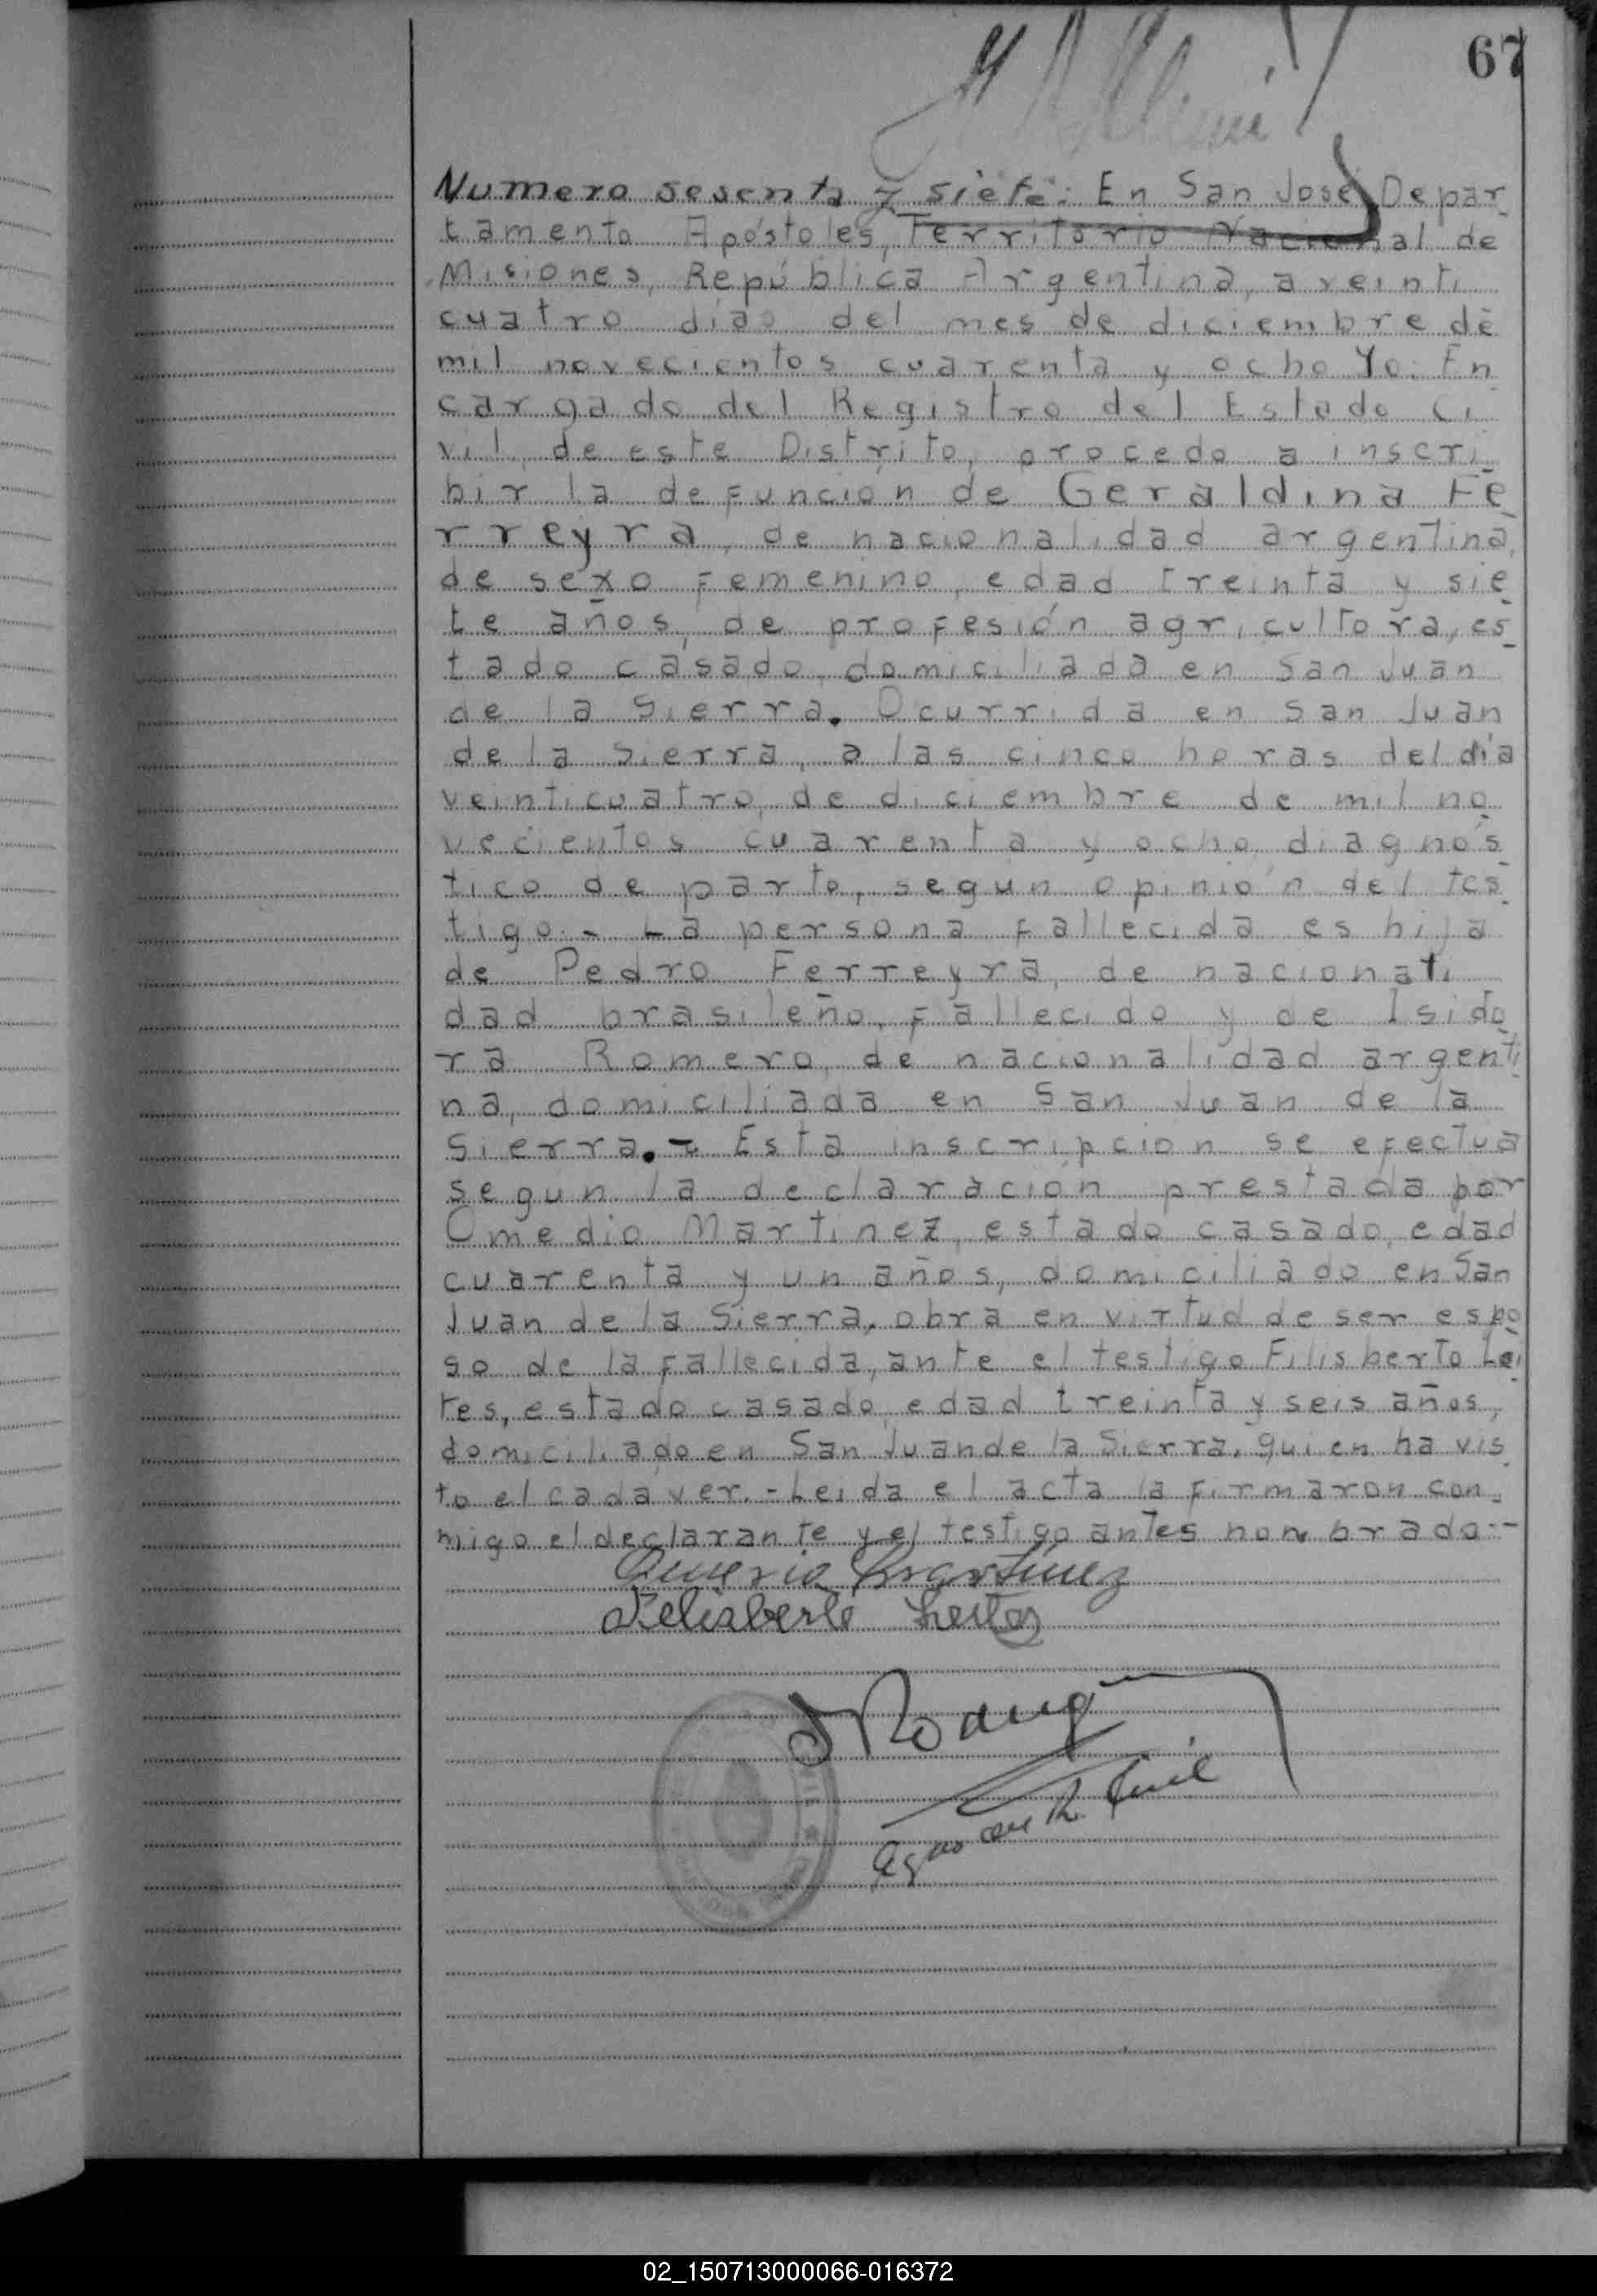 67
Numero sesenta y siete: En San José, Depar
tamento Apóstoles, Territorio Nacional de
Misiones, República Argentina, a veinti
cuatro días del mes de diciembre de
mil novecientos cuarenta y ocho Yo. En
cargado del Registro del Estado Ci
vil, de este Distrito, procedo a inscri
bir la defuncion de Geraldina Fe
rreyra, de nacionalidad argentina,
de sexo femenino, edad treinta y sie
te años, de profesión agricultora, es
tado casado, domiciliada en San Juan
de la Sierra. Ocurrida en San Juan
de la Sierra, a las cinco horas del día
veinticuatro, de diciembre de mil no
vecientos cuarenta y ocho, diagnós
tico de parto, segun opinión del tes
tigo.- La persona fallecida es hija
de Pedro Ferreyra, de nacionali
dad brasileño, fallecido y de Isido
ra Romero, de nacionalidad argenti
na, domiciliada en San Juan de la
Sierra.- Esta inscripcion se efectua
segun la declaración prestada por
Omedio Martinez, estado casado, edad
cuarenta y un años, domiciliado en San
Juan de la Sierra, obra en virtud de ser espo
so de la fallecida, ante el testigo Filisberto Lei
tes, estado casado, edad treinta y seis años,
domiciliado en San Juan de la Sierra, quien ha vis
to el cadaver.- Leida el acta la firmaron con
migo el declarante y el testigo antes nombrado.-
Martinez
Felisberto Leites
02_150713000066-016372